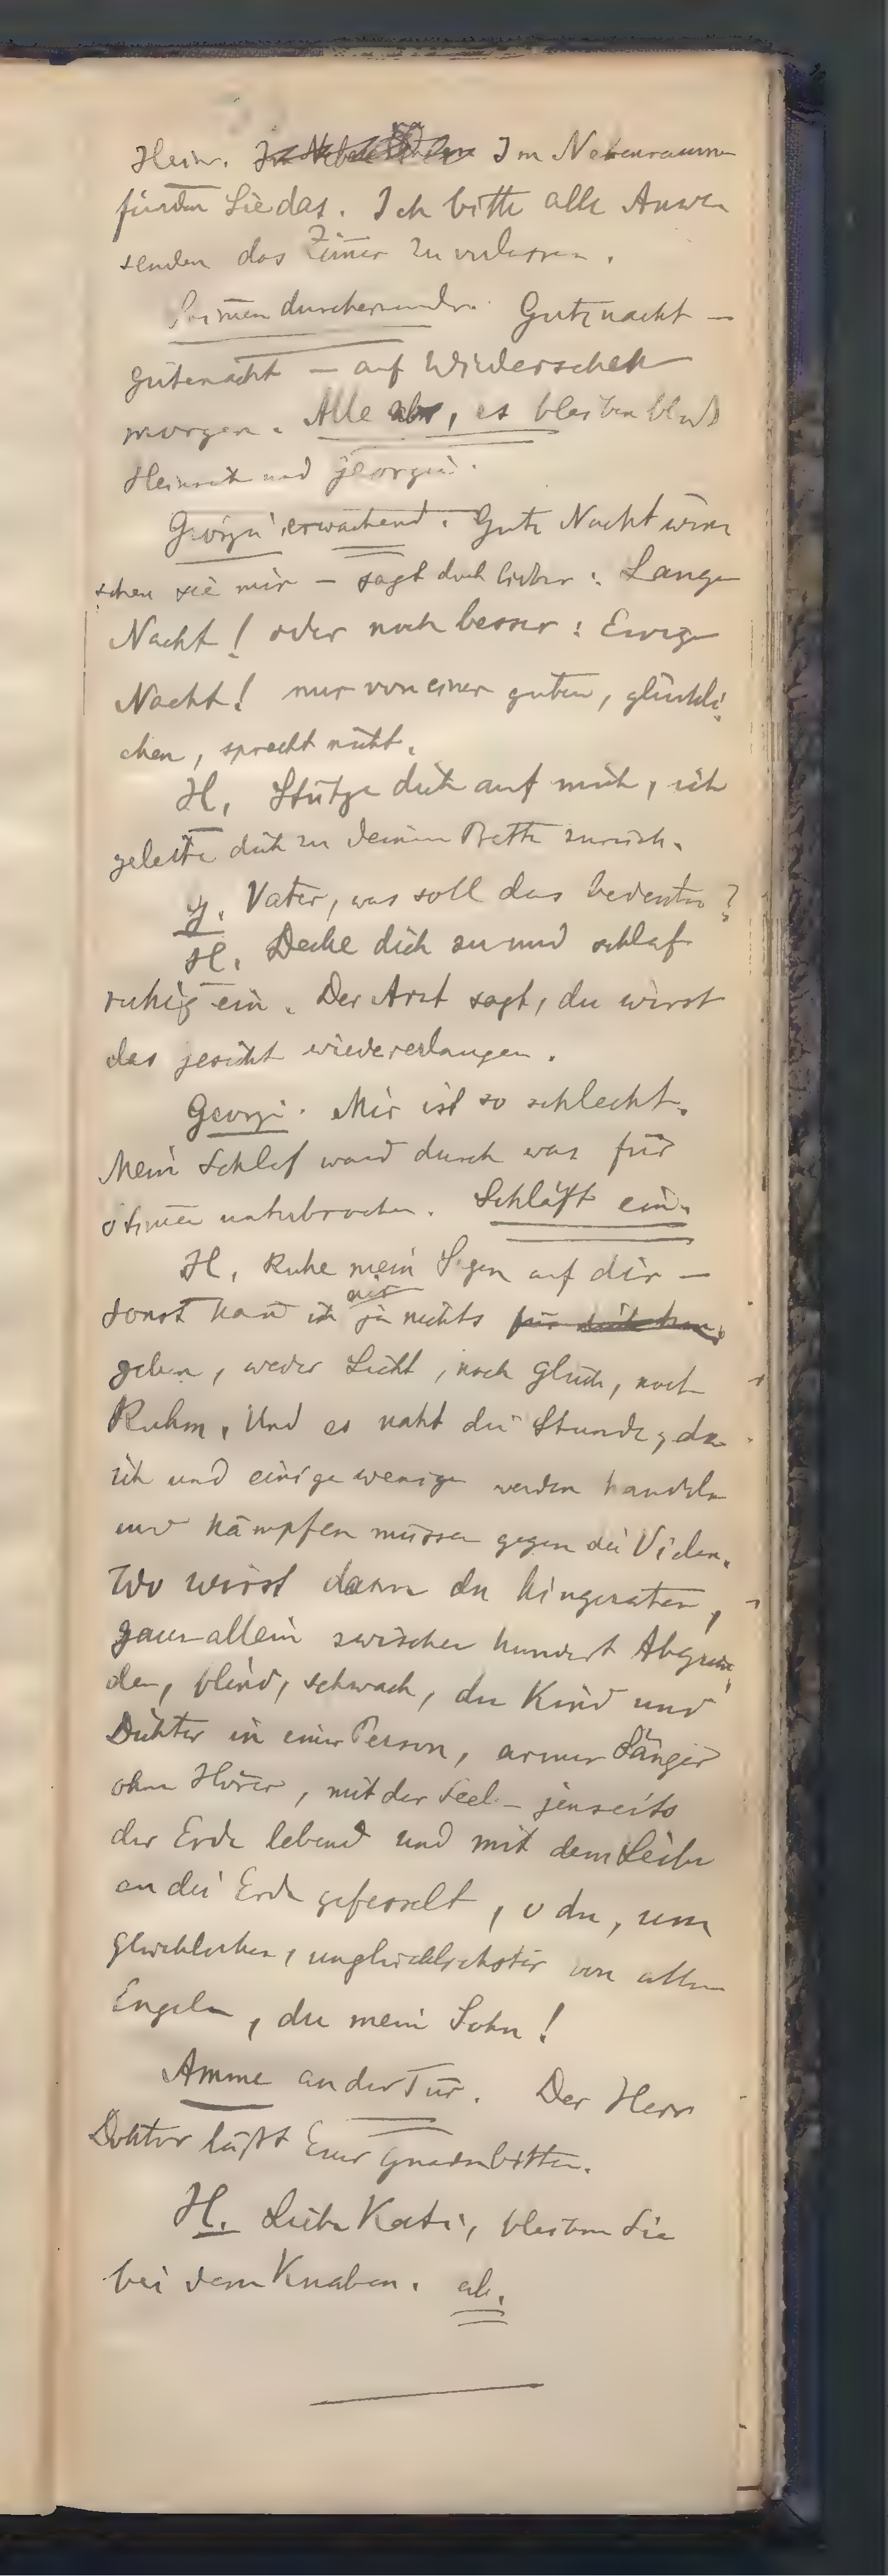 Heinr. Im Nebenraume
finden Sie das. Ich bitte alle Anwe
senden das Zimmer zu verlassen.
Stimmen durcheinander. Gutenacht —
gutenacht — auf Wiedersehen
morgen. Alle ab, es bleiben bloß
Heinrich und Georgie.
Georgie erwachend. Gute Nacht wün
schen sie mir — sagt doch lieber: Lange
Nacht! oder noch besser: Ewige
Nacht! nur von einer guten, glückli
chen, sprecht nicht.
H. Stütze dich auf mich, ich
geleite dich zu deinem Bette zurück.
G. Vater, was soll das bedeuten?
H. Decke dich zu und schlaf
ruhig ein. Der Arzt sagt, du wirst
das Gesicht wiedererlangen.
Georgi. Mir ist so schlecht.
Mein Schlaf ward durch was für
Stimmen unterbrochen. Schläft ein.
H. Ruhe mein Segen auf dir —
sonst kann ich dir ja nichts
geben, weder Licht, noch Glück, noch
Ruhm. Und es naht die Stunde, da
ich und einige wenige werden handeln
und kämpfen müssen gegen die Vielen.
Wo wirst dann du hingeraten,
ganz allein zwischen hundert Abgrün
den, blind, schwach, du Kind und
Dichter in einer Person, armer Sänger
ohne Hörer, mit der Seele jenseits
der Erde lebend und mit dem Leibe
an die Erde gefesselt, o du, un
glücklicher, unglücklichster von allen
Engeln, du mein Sohn!
Amme an der Tür. Der Herr
Doktor läßt Euer Gnaden bitten.
H. Liebe Kati, bleiben Sie
bei dem Knaben. ab.